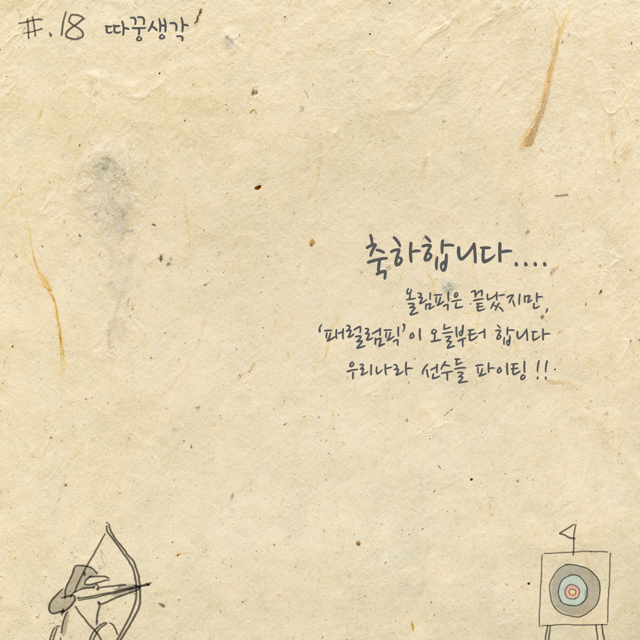 #.18 따꿍생각
축하합니다....
올림픽은 끝났지만,
'패럴럼픽'이 오늘부터 합니다
우리나라 선수들 파이팅!!